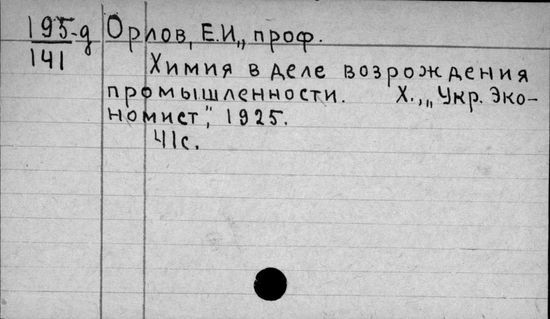 195-д Орлов, Е.И., проф.
141
Химия в деле возрождения
промышленности. Х., „Укр. Эко-
номист", 1925.
41с.